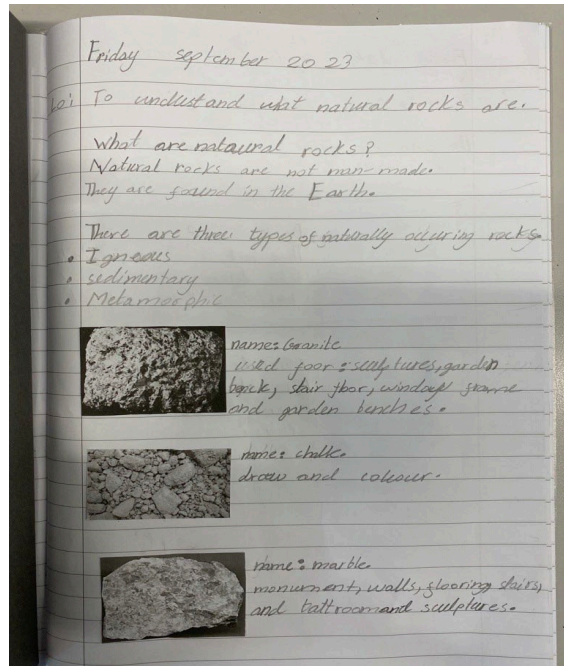 Friday september 20 23
Lo: To undustand what natural rocks are.
What are nataural rocks?
Natural rocks are not man-made.
They are found in the Earth.
There are three types of naturally occuring rocks.
• Igneous
• sedimentary
• Metamorphic
name: Granite
used foor: sculptures, garden
brick, stair floor, window frame
and garden benches.
name: chalk.
draw and colour.
name: marble.
monument, walls, flooring, stairs,
and battroom and sculptures.